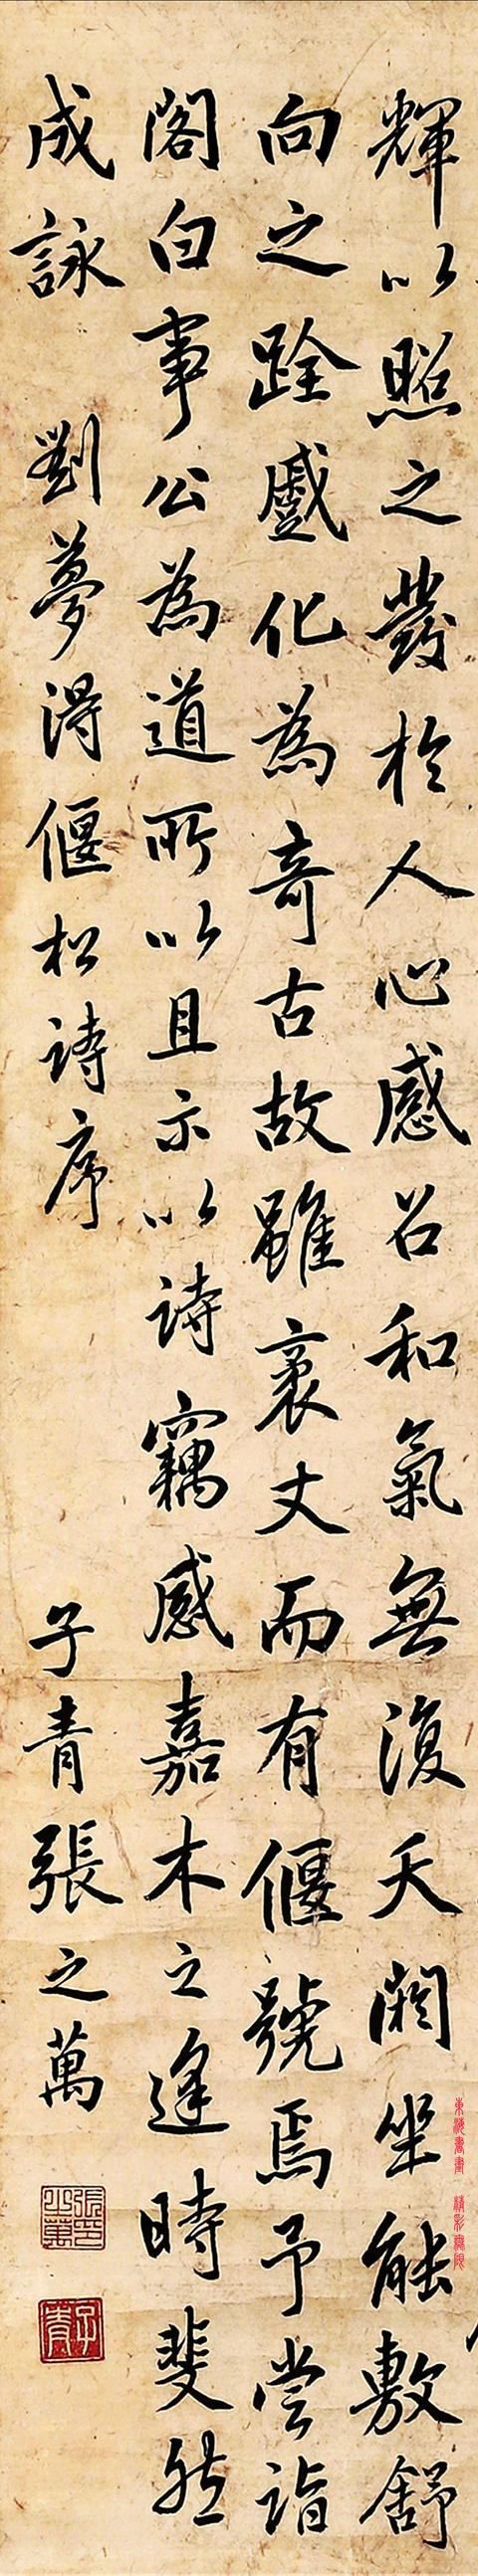 輝以照之發於人心感召和氣無復夭閼坐能敷舒
向之跧蹙化為奇古故雖袤丈而有偃號焉予嘗詣
閣白事公為道所以且示以詩竊感嘉木之逢時斐然
成詠 劉夢得偃松詩序 子青張之萬
張之萬印
子青
東海書畫 精彩無限